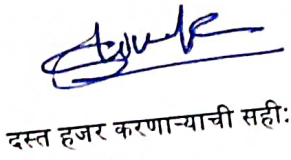 दस्त हजर करणाऱ्याची सही: